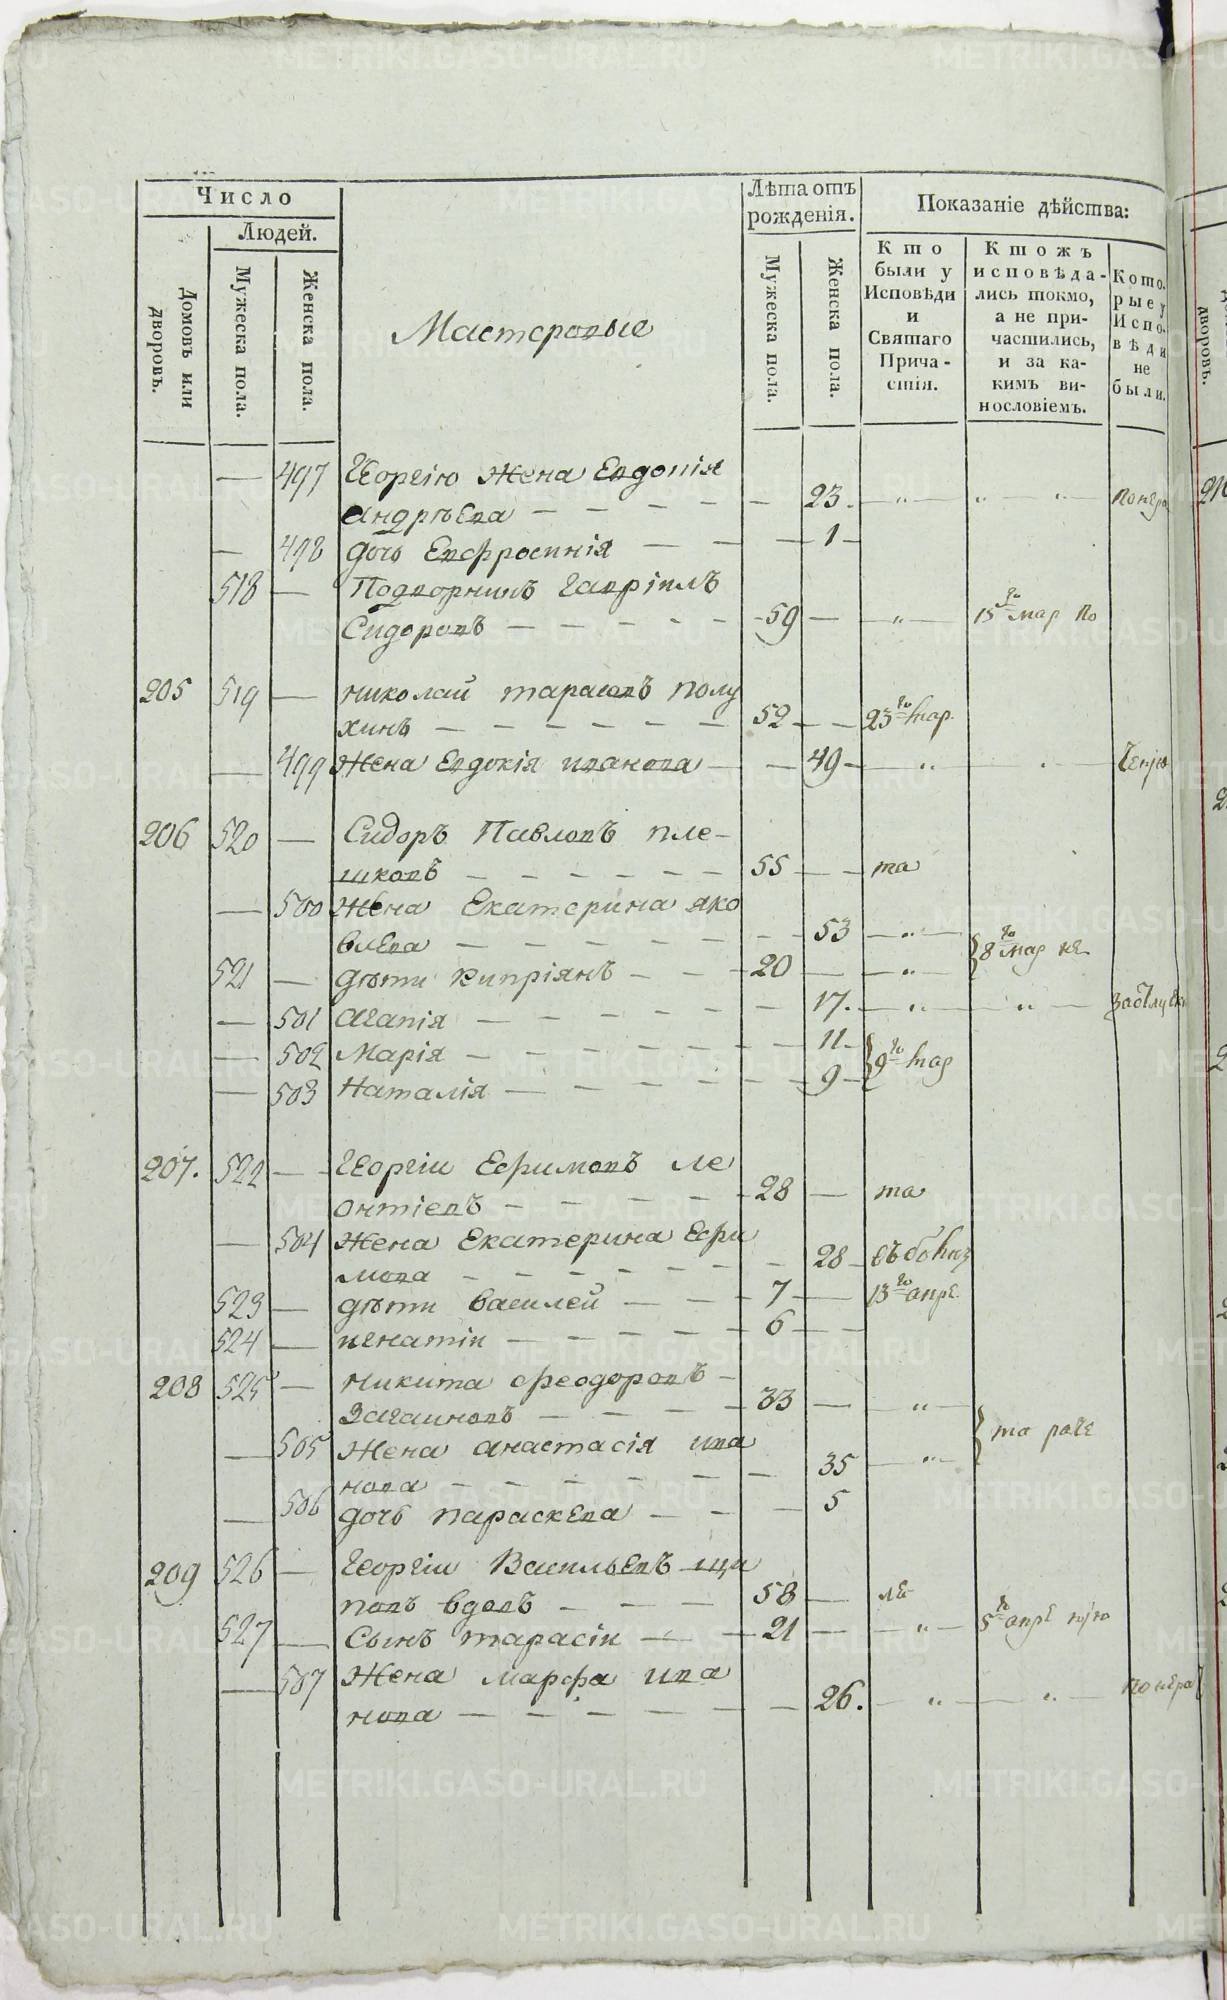 Число
Людей.
Домовъ или дворовъ.
Мужеска пола.
Женска пола.
Мастеровые
Лѣта отъ рожденія.
Мужеска пола.
Женска пола.
Показаніе дѣйства:
Кто были у Исповѣди и Святаго Причастія.
Ктожъ исповѣдались токмо, а не причастились, и за какимъ винословіемъ.
Которые у Исповѣди не были.
— 497 Георгію жена Евдокія
Андрѣева — 23. — „ — „ — „ —
— 498 дочь Евфросинія — 1 —
518 — Подворникъ Гавріилъ
Сидоровъ — 59 — — „ — 15го мар по
205 519 — Николай Тарасовъ Полу
хинъ — 52 — — 23го мар.
— 499 Жена Евдокія Иванова — 49 — „
206 520 — Сидоръ Павловъ Пле-
шковъ — 55 — — та
— 500 Жена Екатерина Яко
влева — 53 — „ — 8го мар не
521 — дѣти Кипріянъ — 20 — — „ —
— 501 Агапія — 17. — „ — „ —
— 502 Марія — 11 — 9го мар
— 503 Наталія — 9 —
207. 522 — Георгіи Ефимовъ Ле
онтіевъ — 28 — та
— 504 Жена Екатерина Ефи
мова — 28 —
523 — дѣти Василей — 7 — 13го апре
524 — Игнатіи — 6 — —
208 525 — Никита Феодоровъ —
Загаиновъ — 33 — — „ —
— 505 Жена Анастасія Ива
нова — 35 — „ — та
— 506 дочь Параскева — 5
209 526 — Георгіи Васильевъ Щи
повъ вдовъ — 58 —
527 — Сынъ Тарасіи — 21 — — „ — 5го апре
— 507 Жена Марфа Ива
нова — 26. — „ — „ —
METRIKI.GASO-URAL.RU